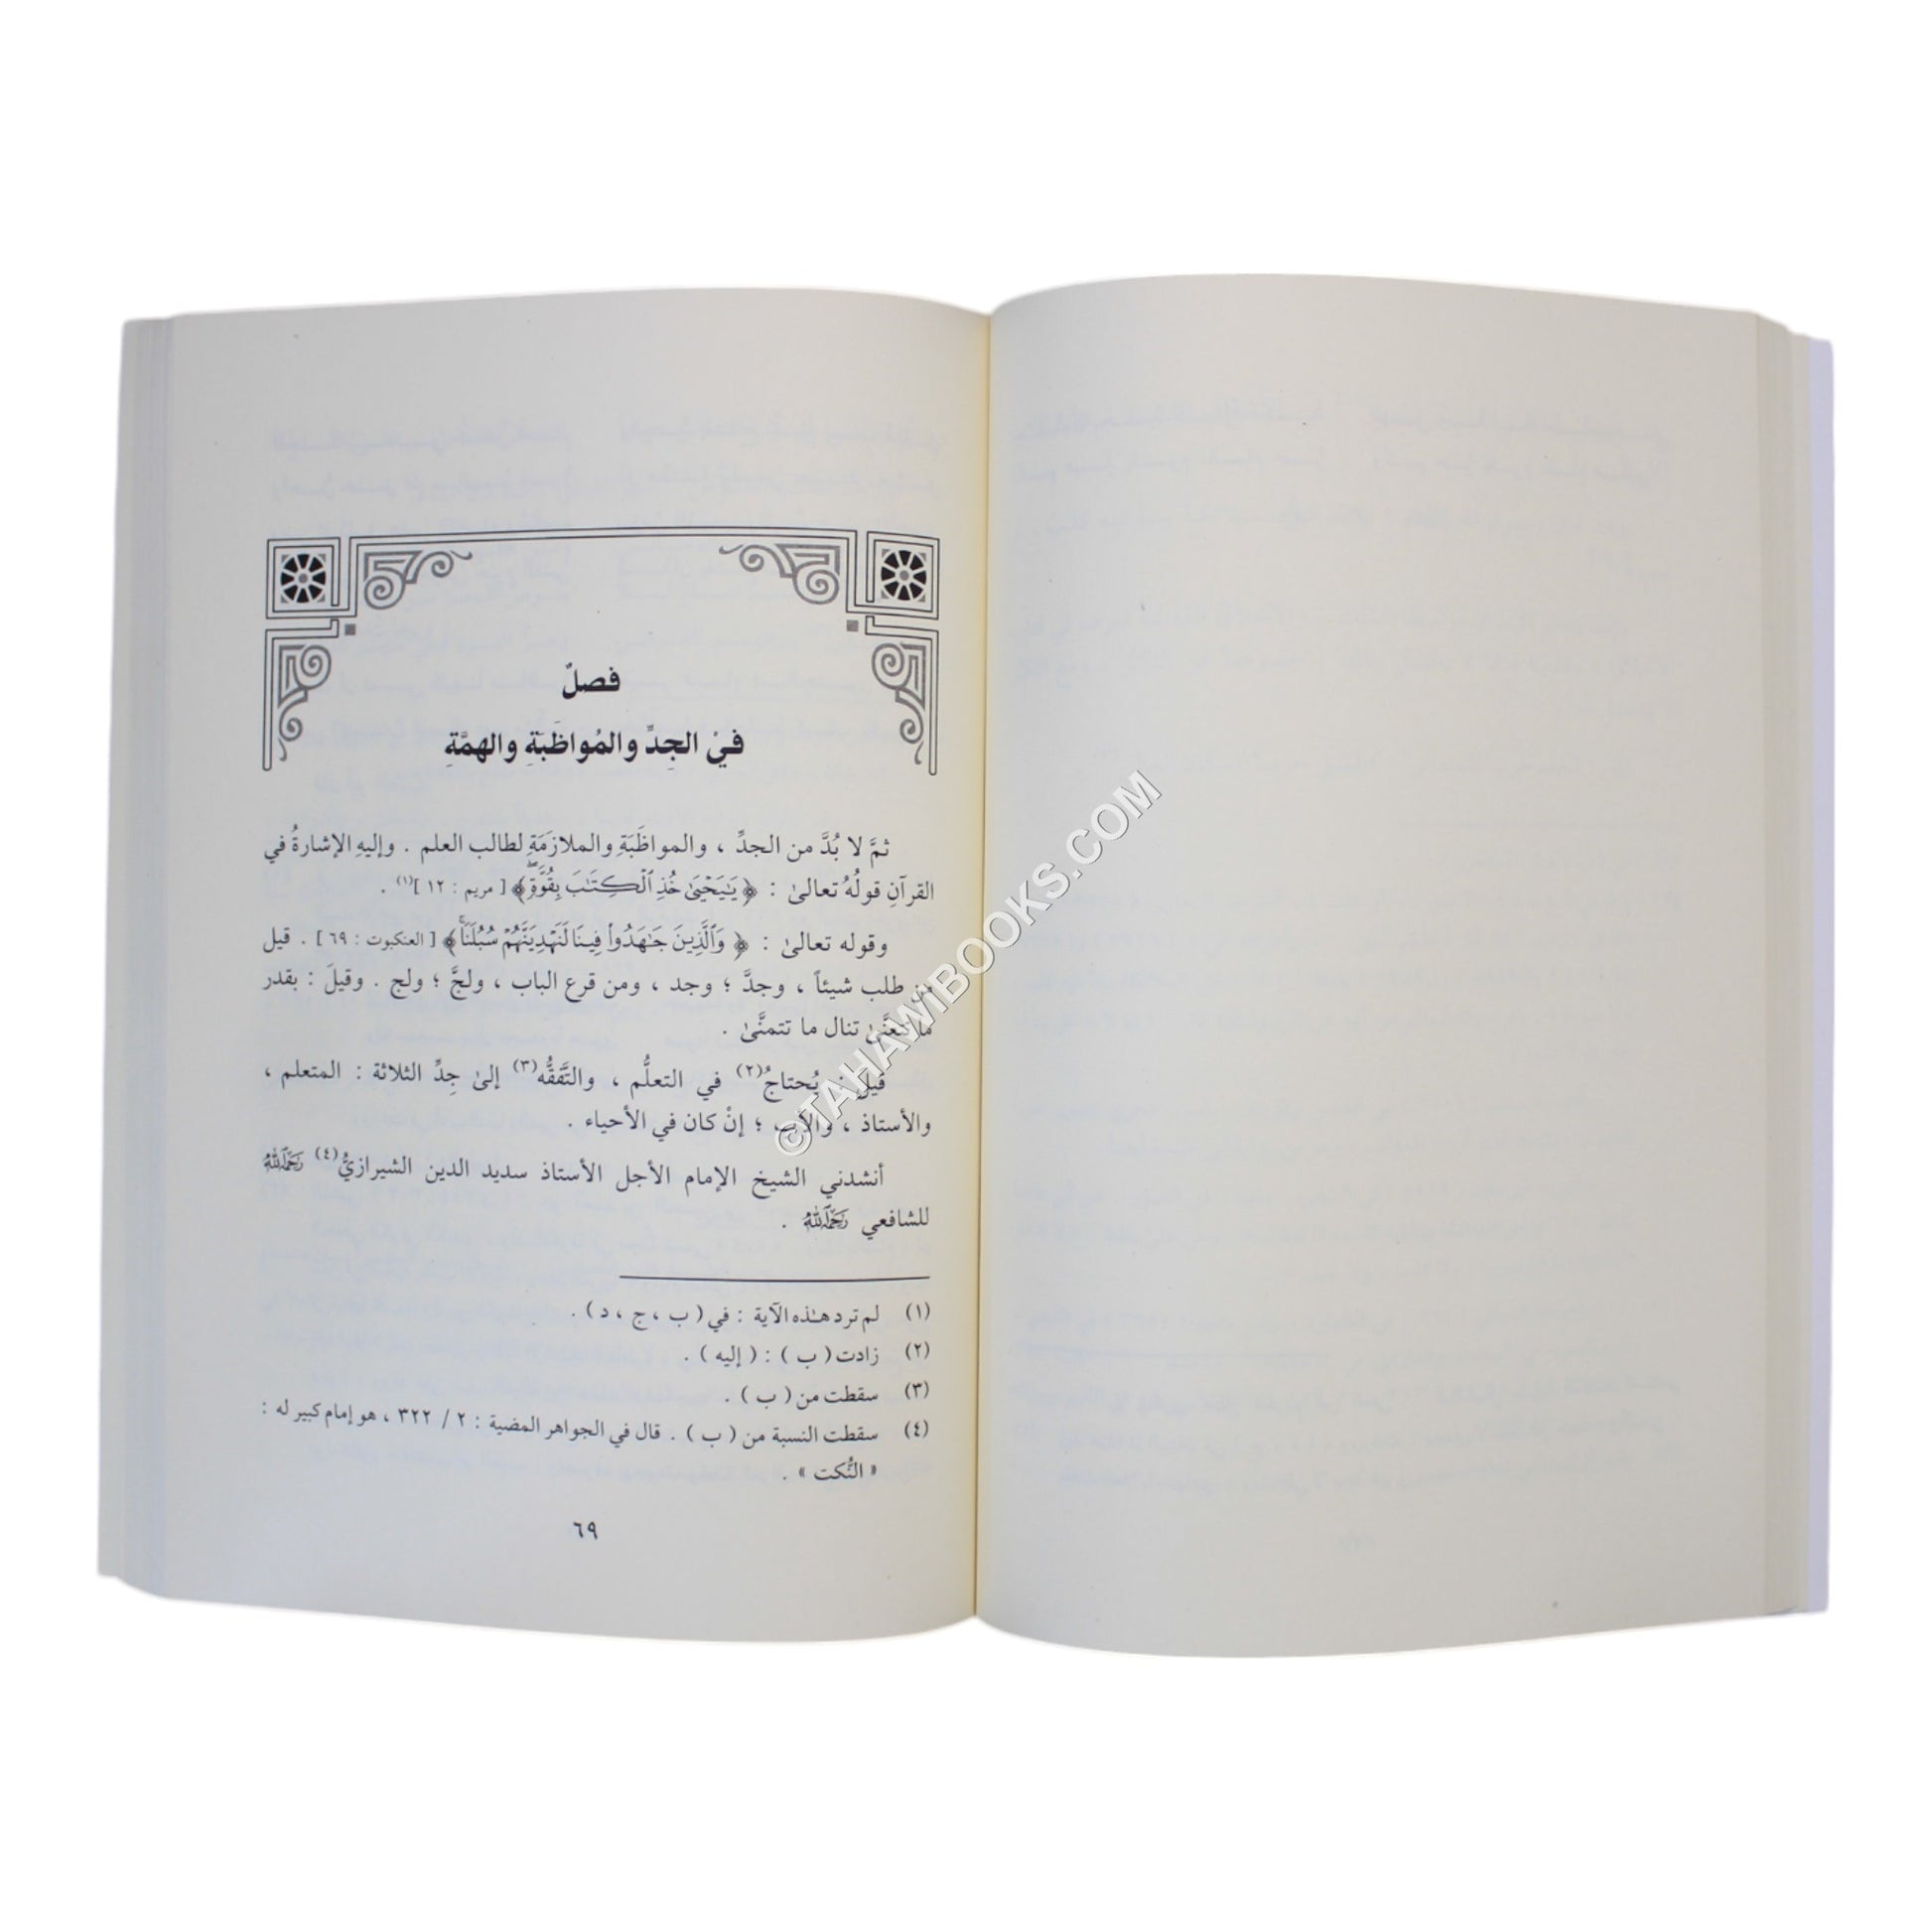 فصلٌ
فيْ الجِدِّ والمُواظَبَةِ والهمَّةِ
ثمَّ لا بُدَّ من الجدِّ ، والمواظَبَةِ والملازمَةِ لطالب العلم . وإليهِ الإشارةُ في
القرآنِ قولُهُ تعالىٰ : ﴿يَٰيَحْيَىٰ خُذِ ٱلْكِتَٰبَ بِقُوَّةٍۖ﴾ [ مريم : ١٢ ](١) .
وقوله تعالىٰ : ﴿ وَٱلَّذِينَ جَٰهَدُواْ فِينَا لَنَهْدِيَنَّهُمْ سُبُلَنَاۚ﴾ [ العنكبوت : ٦٩ ] . قيل
من طلب شيئاً ، وجدَّ ؛ وجد ، ومن قرع الباب ، ولجَّ ؛ ولج . وقيلَ : بقدر
ما تتعنَّىٰ تنال ما تتمنَّىٰ .
قيل : يُحتاجُ(٢) في التعلُّم ، والتَّفقُّه(٣) إلىٰ جِدِّ الثلاثة : المتعلم ،
والأستاذ ، والأب ؛ إنْ كان في الأحياء .
أنشدني الشيخ الإمام الأجل الأستاذ سديد الدين الشيرازيُّ(٤) رَحِمَهُ ٱللَّهُ
للشافعي رَحِمَهُ ٱللَّهُ .
(١) لم ترد هٰذه الآية : في ( ب ، ج ، د ) .
(٢) زادت ( ب ) : ( إليه ) .
(٣) سقطت من ( ب ) .
(٤) سقطت النسبة من ( ب ) . قال في الجواهر المضية : ٢ / ٣٢٢ ، هو إمام كبير له :
« النُّكت » .
٦٩
©TAHAWIBOOKS.COM